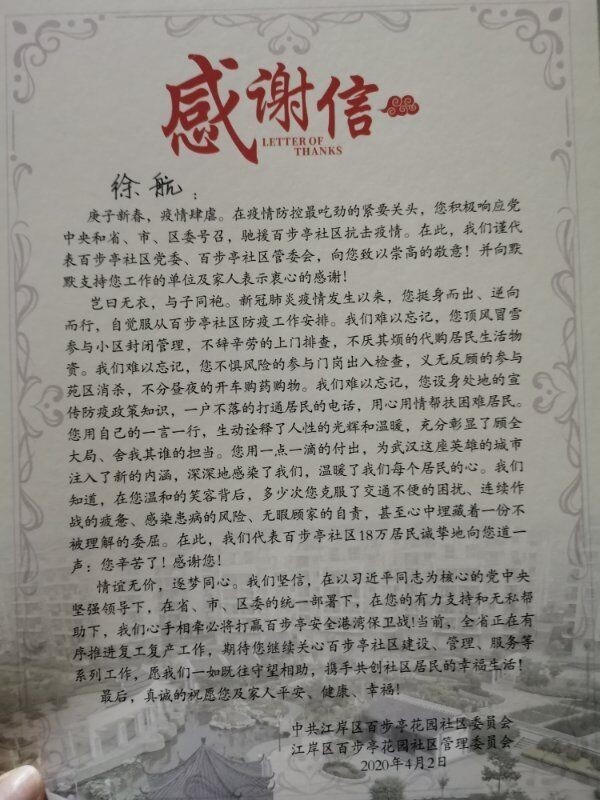 感谢信
LETTER OF
THANKS
徐航：
庚子新春，疫情肆虐。在疫情防控最吃劲的紧要关头，您积极响应党
中央和省、市、区委号召，驰援百步亭社区抗击疫情。在此，我们谨代
表百步亭社区党委、百步亭社区管委会，向您致以崇高的敬意！并向默
默支持您工作的单位及家人表示衷心的感谢！
岂曰无衣，与子同袍。新冠肺炎疫情发生以来，您挺身而出、逆向
而行，自觉服从百步亭社区防疫工作安排。我们难以忘记，您顶风冒雪
参与小区封闭管理，不辞辛劳的上门排查，不厌其烦的代购居民生活物
资。我们难以忘记，您不惧风险的参与门岗出入检查，义无反顾的参与
苑区消杀，不分昼夜的开车购药购物。我们难以忘记，您设身处地的宣
传防疫政策知识，一户不落的打通居民的电话，用心用情帮扶困难居民。
您用自己的一言一行，生动诠释了人性的光辉和温暖，充分彰显了顾全
大局、舍我其谁的担当。您用一点一滴的付出，为武汉这座英雄的城市
注入了新的内涵，深深地感染了我们，温暖了我们每个居民的心。我们
知道，在您温和的笑容背后，多少次您克服了交通不便的困扰、连续作
战的疲惫、感染患病的风险、无暇顾家的自责，甚至心中埋藏着一份不
被理解的委屈。在此，我们代表百步亭社区18万居民诚挚地向您道一
声：您辛苦了！感谢您！
情谊无价，逐梦同心。我们坚信，在以习近平同志为核心的党中央
坚强领导下，在省、市、区委的统一部署下，在您的有力支持和无私帮
助下，我们心手相牵必将打赢百步亭安全港湾保卫战！当前，全省正在有
序推进复工复产工作，期待您继续关心百步亭社区建设、管理、服务等
系列工作，愿我们一如既往守望相助，携手共创社区居民的幸福生活！
最后，真诚的祝愿您及家人平安、健康、幸福！
中共江岸区百步亭花园社区委员会
江岸区百步亭花园社区管理委员会
2020年4月2日